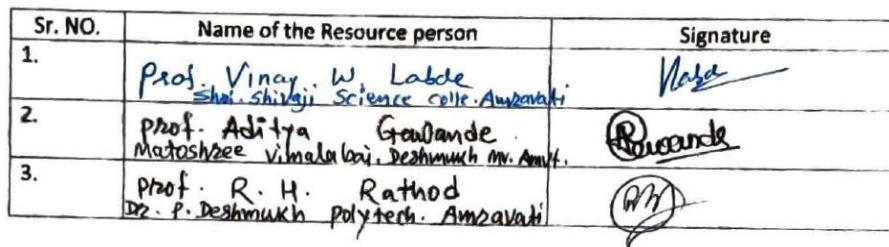 Sr. NO. Name of the Resource person Signature
1.
Prof. Vinay. W Labde
Shri. Shivaji Science colle. Amravati
2.
prof. Aditya Gawande.
Matoshree vimalabai. Deshmukh mv. Amvt.
3.
prof. R. H. Rathod
Dr. P. Deshmukh polytech. Amravati